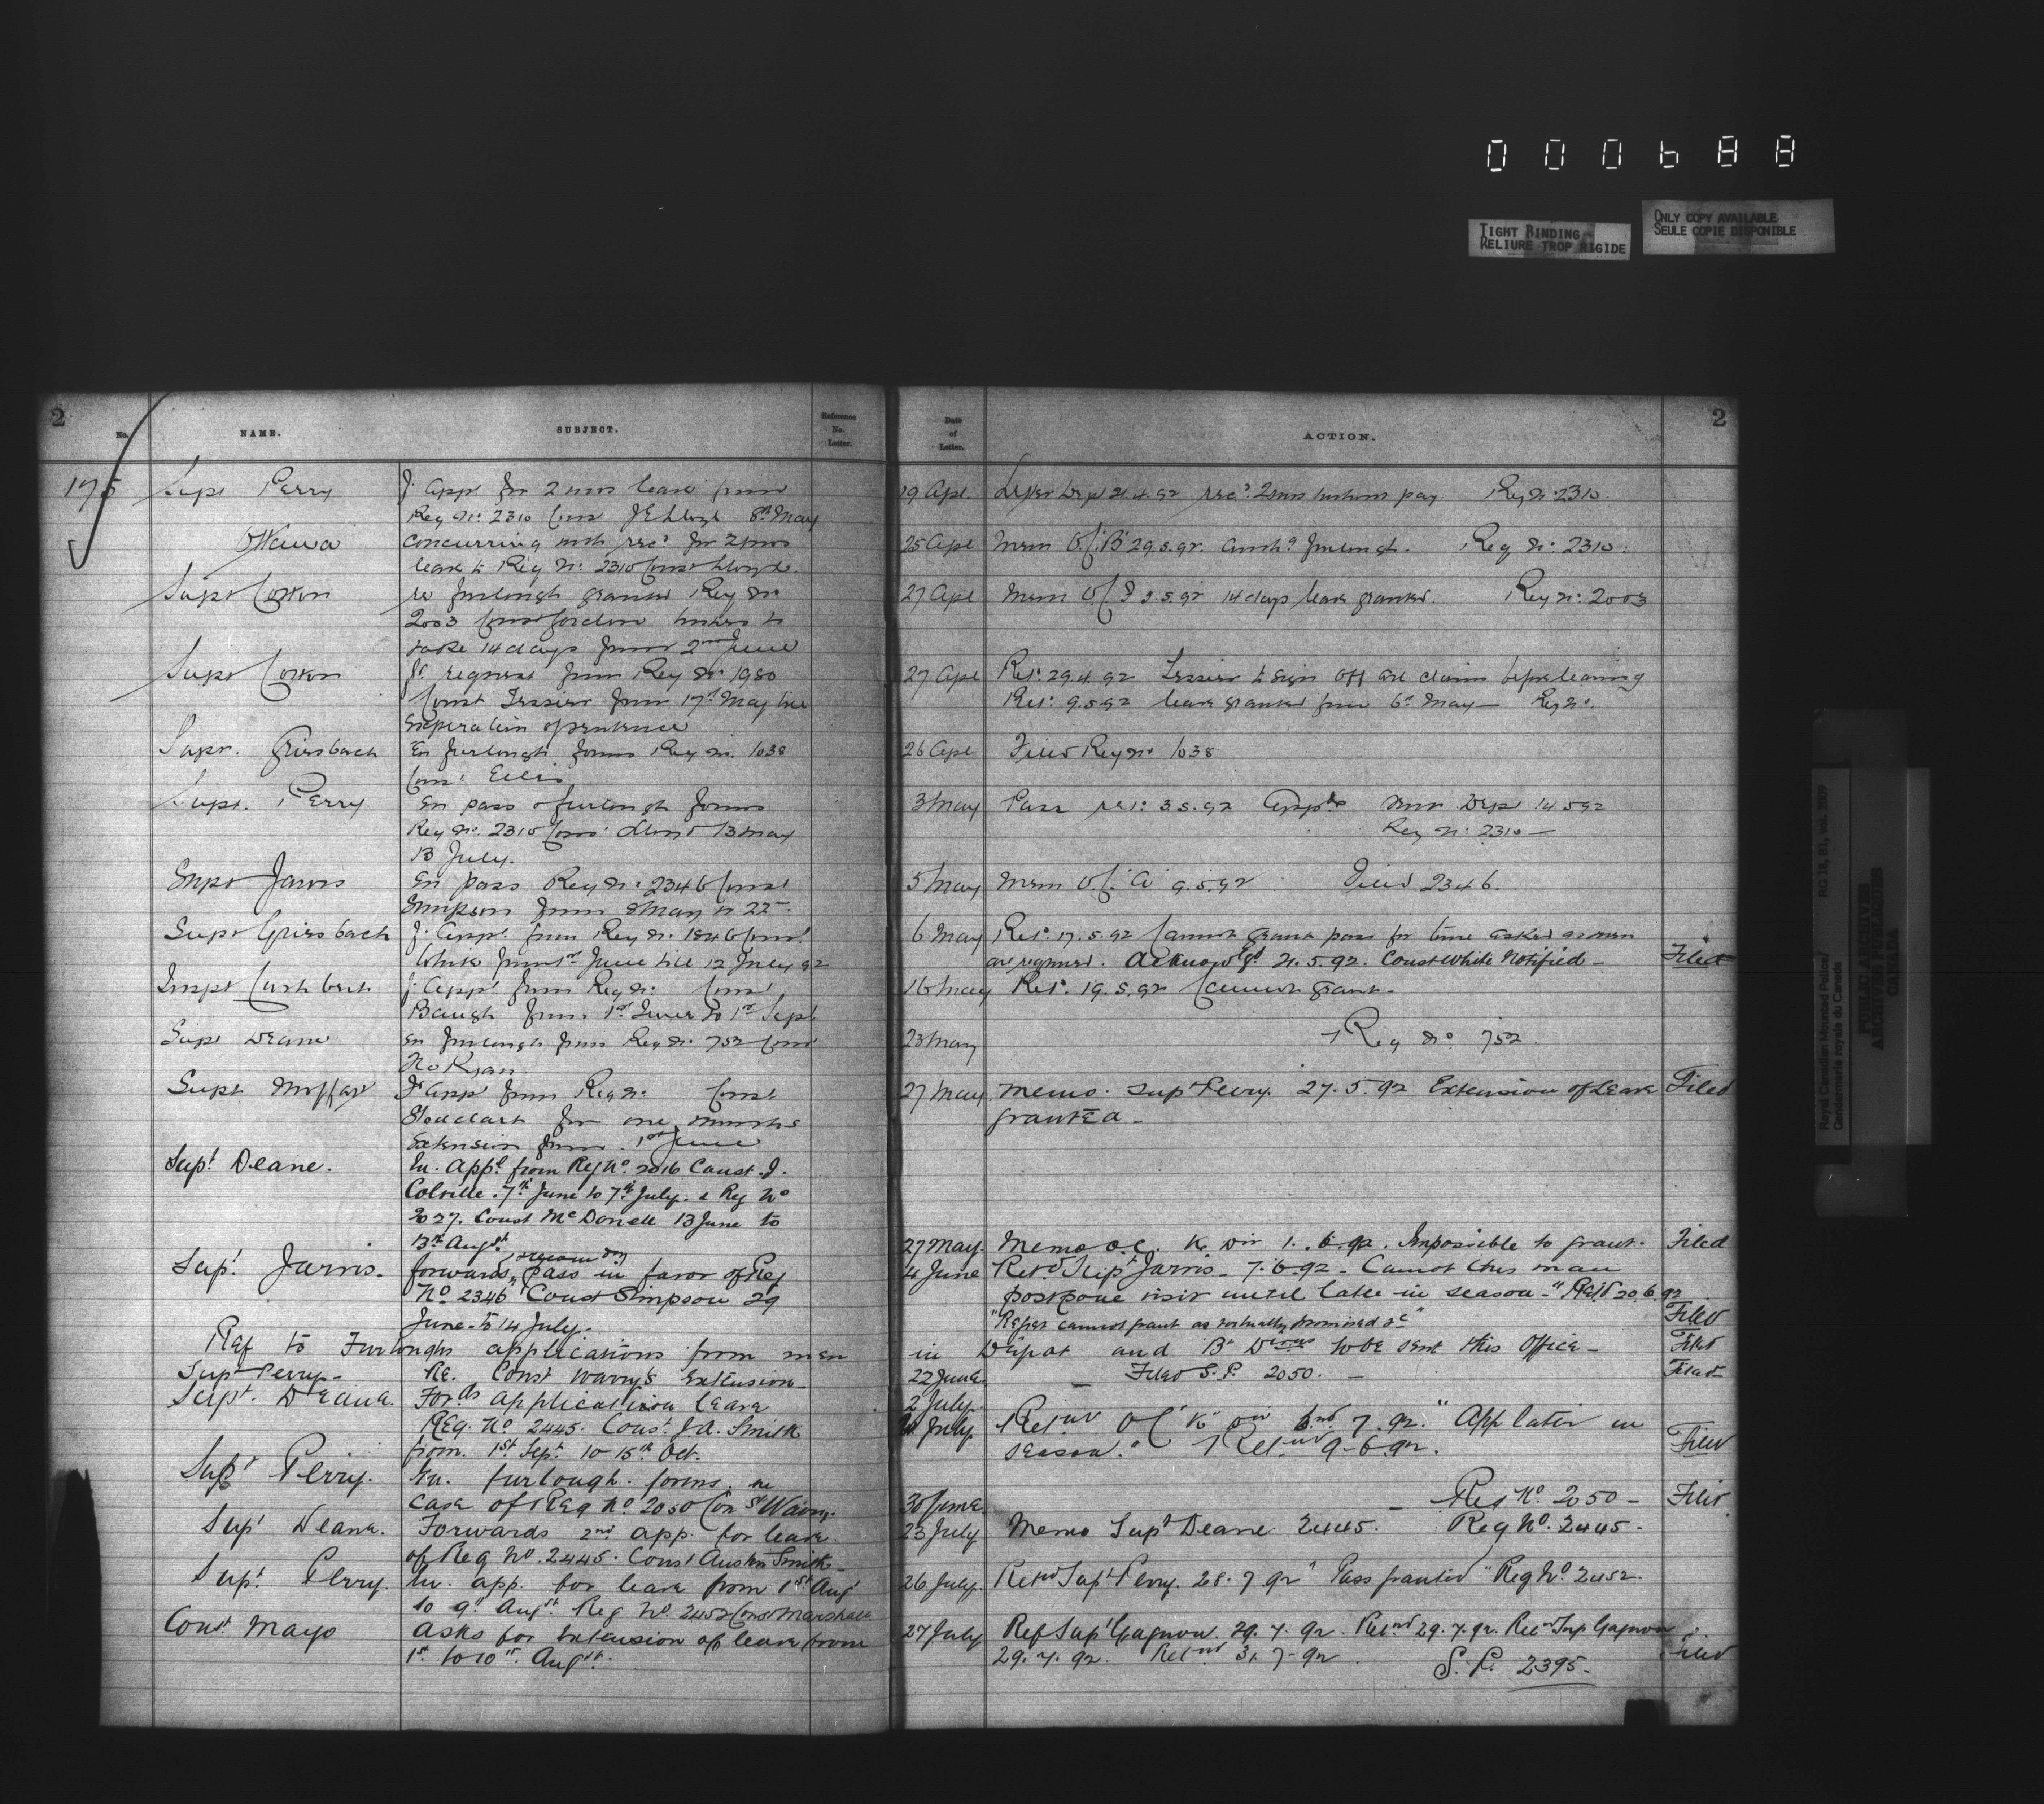 000688
TIGHT BINDING
RELIURE TROP RIGIDE
ONLY COPY AVAILABLE
SEULE COPIE DISPONIBLE
2
No.
NAME.
SUBJECT.
Reference No. Letter.
Date of Letter.
ACTION.
2
175
Supt Perry
f. app for 2 mos leave from
19 Apl.
21.4.92 rec. 2 mos without pay. Reg No. 2310.
Reg No. 2310 Const J E Lloyd 8th May
Ottawa
concurring with rec. for 2 mos
25 Apl
Mem O.C. "B" 29.5.92. furlough. Reg No. 2310.
leave to Reg No. 2310 Const Lloyd.
Supt Cotton
re furlough granted Reg No
27 Apl
Mem O.C. 14 days leave granted. Reg No. 2003
2003 Const wishes to
take 14 days from 2nd June
Supt Cotton
fr. request from Reg No. 1980
27 Apl
Ret. 29.4.92 Tessier to sign off all claims before leaving
Const Tessier from 17th May till
Ret. 9.5.92 leave granted from 6th May — Reg No.
expiration of
Supt. Griesbach
En furlough forms Reg No. 1038
26 Apl
Filed Reg No. 1038
Const Ellis
Supt. Perry
En pass & furlough forms
3 May
Pass ret. 3.5.92 14.5.92
Reg No. 2310 Const Lloyd 13 May
Reg No. 2310 —
13 July.
Supt Jarvis
En pass Reg No. 2346 Const
5 May
Mem O.C. "A" 9.5.92 Filed 2346.
Simpson from 8 May to 22
Supt Griesbach
f. app. from Reg No. 1846 Const.
6 May
Ret. 17.5.92 Cannot grant pass for time asked as men
White from 1st June till 12 July 92
are required. Acknowlgd 21.5.92. Const White Notified —
Filed
Inspt Cuthbert
f. app. from Reg No. Const
16 May
Ret. 19.5.92 Cannot grant.
Baugh from 1st June to 1st Sept
Supt Deane
En furlough from Reg No. 752 Const
23 May
Reg No. 752
Ryan.
Supt Moffatt
f. app from Reg No. Const
27 May
Memo. Supt Perry. 27.5.92 Extension of Leave
Filed
Stoddart for one months
granted —
Extension from 1st June
Supt Deane.
En. Appl from Reg No. 2016 Const. J.
Colville. 7th June to 7th July. & Reg No
2027. Const McDonell 13 June to
13th Augst.
27 May.
Memo O.C. K Div 1.6.92. Impossible to grant.
Filed
Supt Jarvis.
forwards second pass in favor of Reg
4 June
Retd Supt Jarvis — 7.6.92 — Cannot this man
No 2346 Const Simpson 29
postpone visit until later in season — " Retd 20.6.92
June to 14 July.
"Refer cannot grant as virtually promised &c"
Filed
Ref to Furloughs applications from men in Depot and B Divns to be sent this Office —
Filed
Supt Perry —
Re. Const Warry's Extension —
22 June.
— Filed S.P. 2050. —
Filed
Supt. Deane.
Fords application leave
2 July.
Reg. No 2445. Const. J.A. Smith
July.
Retnd OC "K" Div 7.92. "App later in
from. 1st Sept. to 15th Oct.
season." Retnd 9-6-92.
Filed
Supt Perry.
En. furlough. forms. in
case of Reg No 2050 Const Warry.
30 June.
— Reg No. 2050 —
Filed
Supt Deane.
Forwards 2nd app. for leave.
23 July
Memo Supt Deane 2445. Reg No. 2445.
of Reg No. 2445. Const Austin Smith —
Supt. Perry.
En. app. for leave from 1st Aug
26 July.
Retnd Supt Perry. 28.7.92 "Pass granted" Reg No. 2452.
to 9th Augst. Reg No. 2452 Const Marshall
Const Mayo
Asks for Extension of leave from
27 July
Ref Supt Gagnon 29.7.92. Retnd 29.7.92. Retnd Sup Gagnon
1st to 10th Augst.
29.7.92. Retnd 31.7.92.
Filed
S.P. 2395.
Royal Canadian Mounted Police/
Gendarmerie royale du Canada
RG 18, B1, vol. 2029
PUBLIC ARCHIVES
ARCHIVES PUBLIQUES
CANADA